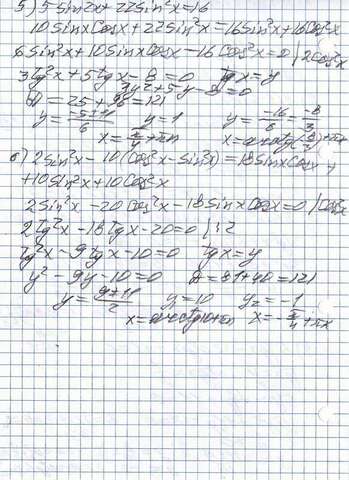 5) 5sin2x + 22sin²x = 16
10sinxcosx + 22sin²x = 16sin²x + 16cos²x
6sin²x + 10sinxcosx - 16cos²x = 0 | 2cos²x
3tg²x + 5tgx - 8 = 0 tgx = y
3y² + 5y - 8 = 0
D = 25 + 96 = 121
y = (-5±11)/6 y = 1 y = -16/6 = -8/3
x = π/4 + πn x = arctg(-8/3)
6) 2sin²x - 10(cos²x - sin²x) = 18sinxcosx +
+ 10sin²x + 10cos²x
2sin²x - 20cos²x - 18sinxcosx = 0 | cos²x
2tg²x - 18tgx - 20 = 0 | :2
tg²x - 9tgx - 10 = 0 tgx = y
y² - 9y - 10 = 0 D = 81 + 40 = 121
y = (9±11)/2 y₁ = 10 y₂ = -1
x = arctg10 + πn x = -π/4 + πx